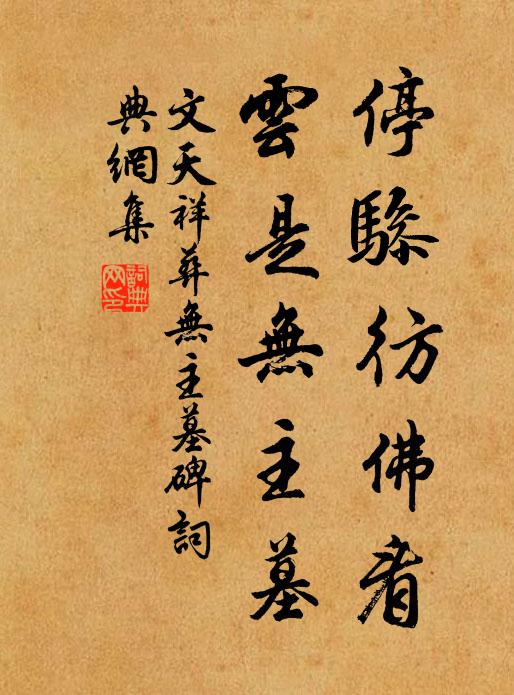 停驂彷佛看
雲是無主墓
文天祥葬無主墓碑詞
典網集
詞典網印